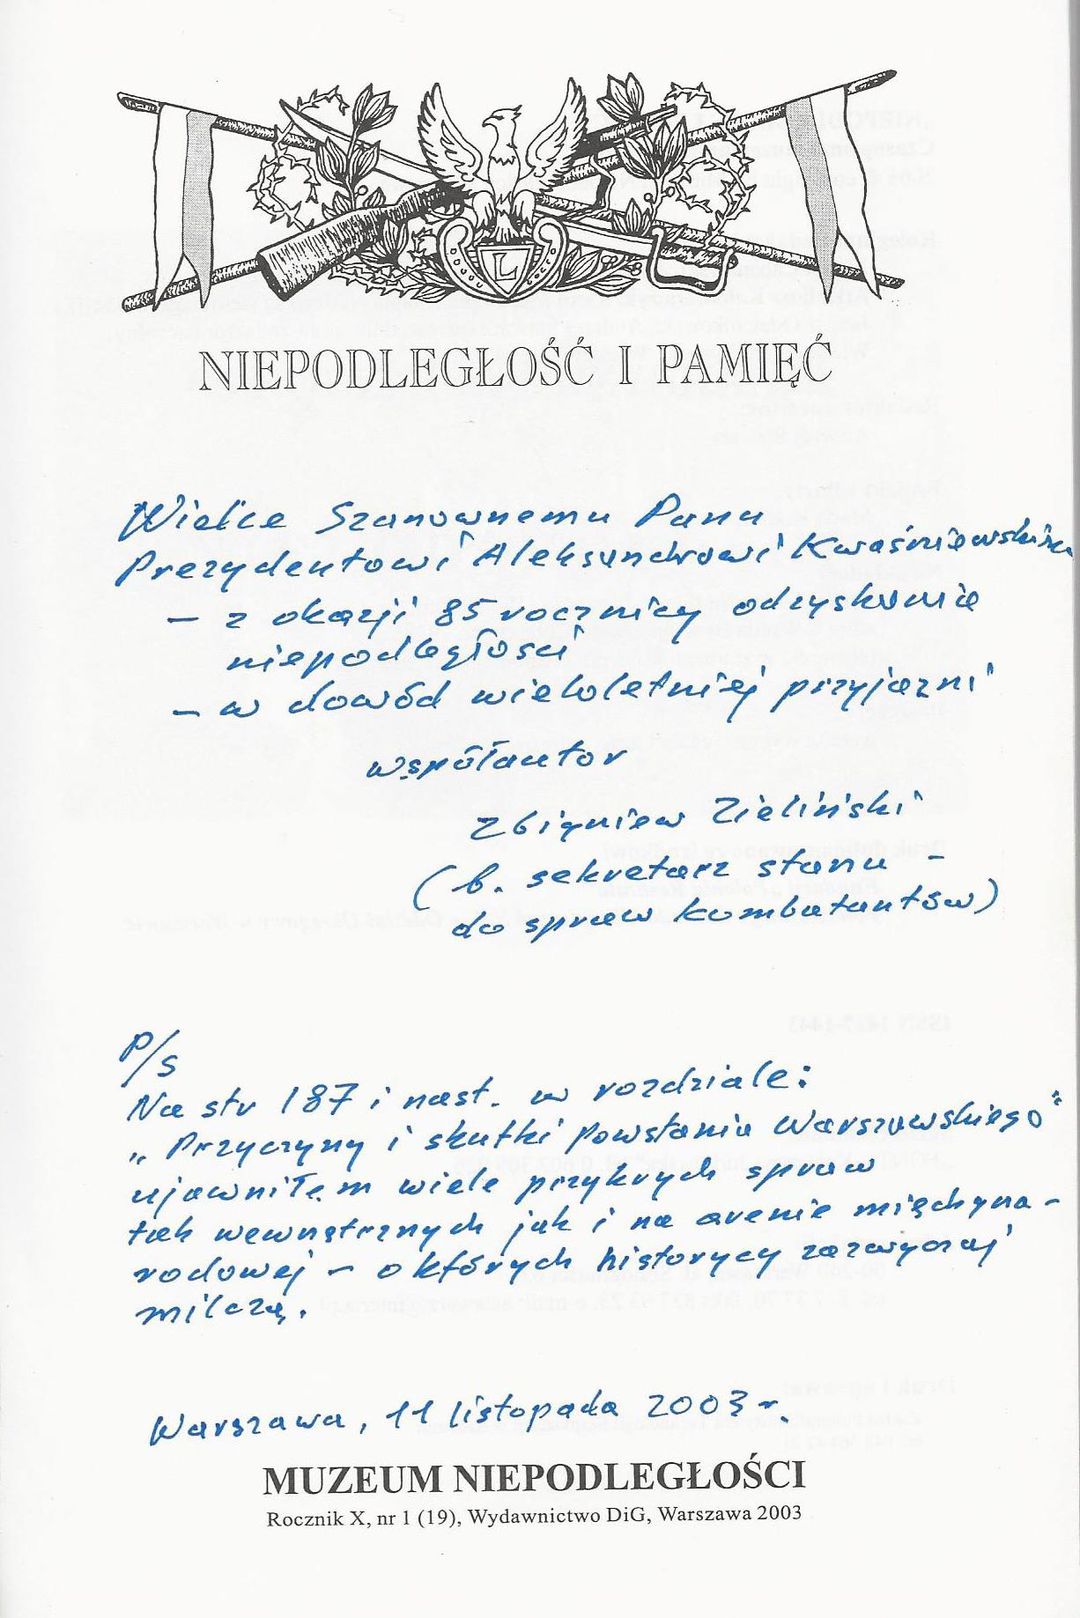 L
NIEPODLEGŁOŚĆ I PAMIĘĆ
Wielce Szanownemu Panu
Prezydentowi Aleksandrowi Kwaśniewskiemu
– z okazji 85 rocznicy odzyskania
niepodległości
– w dowód wieloletniej przyjaźni
współautor
Zbigniew Zieliński
(b. sekretarz stanu –
do spraw kombatantów)
P/s
Na str 187 i nast. w rozdziale:
„Przyczyny i skutki Powstania Warszawskiego"
ujawniłem wiele przykrych spraw
tak wewnętrznych jak i na arenie międzyna-
rodowej – o których historycy zazwyczaj
milczą.
Warszawa, 11 listopada 2003 r.
MUZEUM NIEPODLEGŁOŚCI
Rocznik X, nr 1 (19), Wydawnictwo DiG, Warszawa 2003